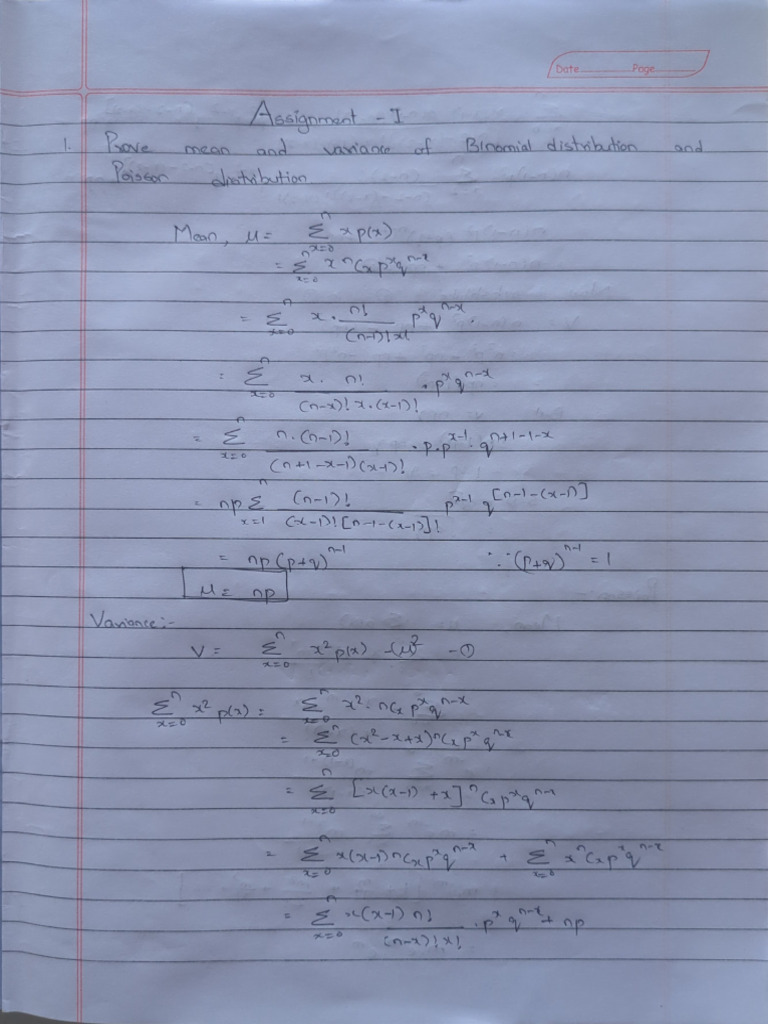 Date Page
Assignment - I
1. Prove mean and variance of Binomial distribution and
Poisson distribution
Mean, μ = Σ_{x=0}^{n} x p(x)
= Σ_{x=0}^{n} x ⁿCₓ p^x q^{n-x}
= Σ_{x=0}^{n} x · n!/((n-1)! x!) p^x q^{n-x}.
= Σ_{x=0}^{n} x · n!/((n-x)! x·(x-1)!) · p^x q^{n-x}
= Σ_{x=0}^{n} n·(n-1)!/((n+1-x-1)(x-1)!) · p·p^{x-1} · q^{n+1-1-x}
= np Σ_{x=1}^{n} (n-1)!/((x-1)! [n-1-(x-1)]!) p^{x-1} q^{[n-1-(x-1)]}
= np (p+q)^{n-1} ∵ (p+q)^{n-1} = 1
μ = np
Variance:-
V = Σ_{x=0}^{n} x² p(x) - (μ)² - ①
Σ_{x=0}^{n} x² p(x) = Σ_{x=0}^{n} x² · nCₓ p^x q^{n-x}
= Σ_{x=0}^{n} (x²-x+x) ⁿCₓ p^x q^{n-x}
= Σ_{x=0}^{n} [x(x-1) + x] ⁿCₓ p^x q^{n-x}
= Σ_{x=0}^{n} x(x-1) ⁿCₓ p^x q^{n-x} + Σ_{x=0}^{n} x ⁿCₓ p^x q^{n-x}
= Σ_{x=0}^{n} x(x-1) n!/((n-x)! x!) · p^x q^{n-x} + np